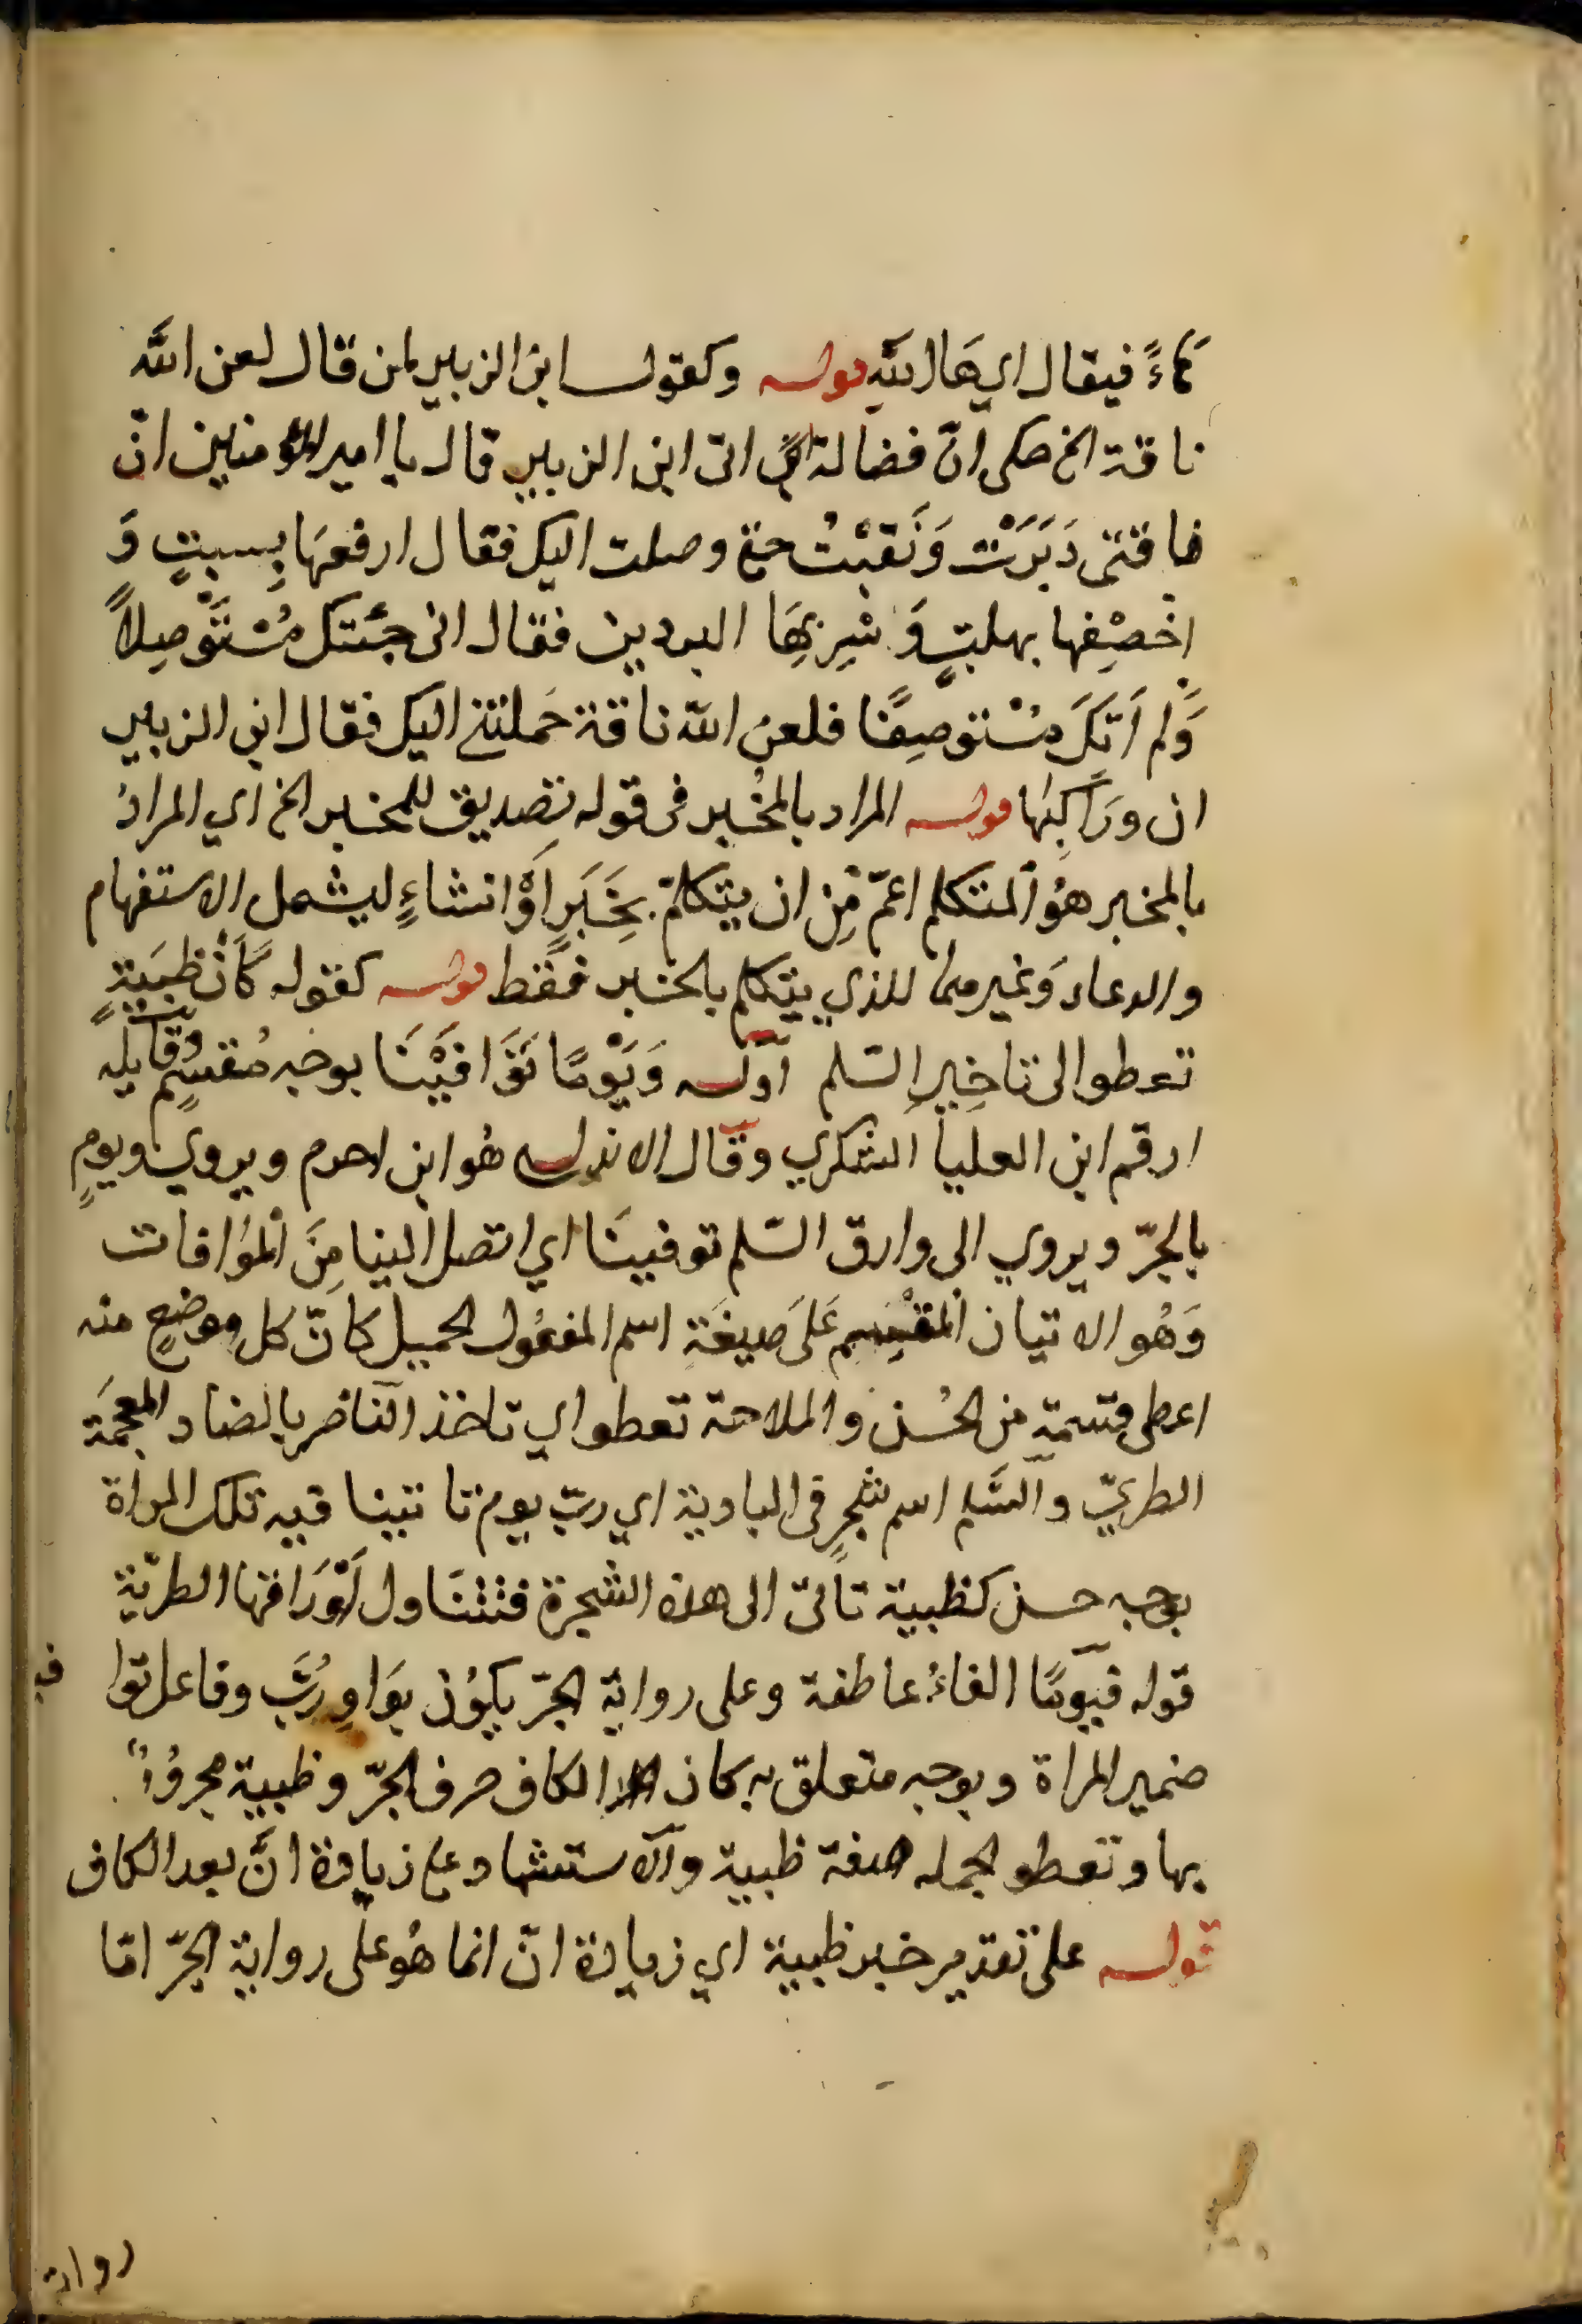 كماءً فيقال اي ها الله قوله وكقول ابن الزبير لمن قال لعن الله
ناقة الخ حكى انّ فضالة اتى ابن الزبير قال يا امير المؤمنين انّ
ناقتى دَبَرَتْ وَنَقبْتُ حتى وصلت اليك فقال ارفعهَا بِسبتٍ وَ
اخصِفها بهلبٍ وَسِرْ بِهَا البردين فقال انى جئتك مُسْتَوْصِلاً
وَلم اَتِكَ مسْتوصِفًا فلعن الله ناقة حَملتنى اليك فقال ابن الزبير
ان ورَاكِبَها قوله المراد بالمخْبر فى قوله تصديق للمخبر الخ اي المرادُ
بالمخبر هوُ المتكلم اعمّ مِن ان يتكلمّ بِخَبَرٍ اوْ انشاءٍ ليشمل الاستفهام
والدعاء وَغيرهما للذي يتكلم بالخبر فقط قوله كقوله كَأنْ ظبيَةٍ
تعطوا الى ناضِيرِ السّلم اَوّله وَيَوْمًا تَوَافَيْنَا بوجه مُقسّمٍ وقايله
ارقم ابن العليا اليشكري وقال الاندلسى هُو ابن احرم ويروي ويومٍ
بالجرّ ويروي الى وارق السّلم توفينَا اي اتصل الينا مِنَ الموُافات
وَهُو الاتيان المقسّم عَلىَ صيغَةِ اسم المفعُول الجميل كانّ كل موضعٍ منه
اعطى قسمة من الحُسن والملاحة تعطوا اي تاخذ النّاضر بالضاد المعجمَة
الطريّ والسَّلم اسم شجرٍ فى البادية اي ربّ يوم تاتينا فيه تلك المراة
بوجه حسن كظبية تأتى الى هذه الشجرة فتتنَاول اَوْرَاقها الطريّة
قوله فيومًا الفاءُ عاطفة وعلى رواية الجرّ يكوُن بوَاوِ رُبَّ وفاعل توا فى
ضمير المراة وبوجه متعلق به كان الكاف حرف الجرّ وظبية مجروُرً
بها وتعطو الجمله صفة ظبية والاستشهاد على زيادة انَّ بعد الكاف
قوله على تقدير خبر ظبية اي زيادة انّ انما هُو على رواية الجرّ امّا
رواية